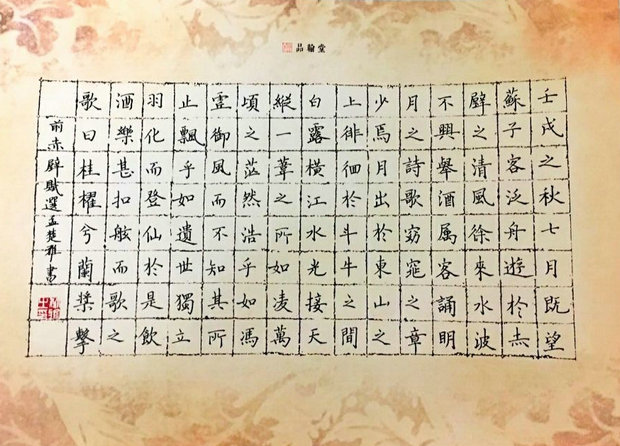 品翰堂
壬戌之秋七月既望
蘇子客泛舟遊於赤
壁之清風徐來水波
不興舉酒属客誦明
月之詩歌窈窕之章
少焉月出於東山之
上徘徊於斗牛之間
白露橫江水光接天
縱一葦之所如凌萬
頃之茫然浩乎如馮
虛御風而不知其所
止飄乎如遺世獨立
羽化而登仙於是飲
酒樂甚扣舷而歌之
歌曰桂櫂兮蘭槳擊
前赤壁賦選孟楚雅書